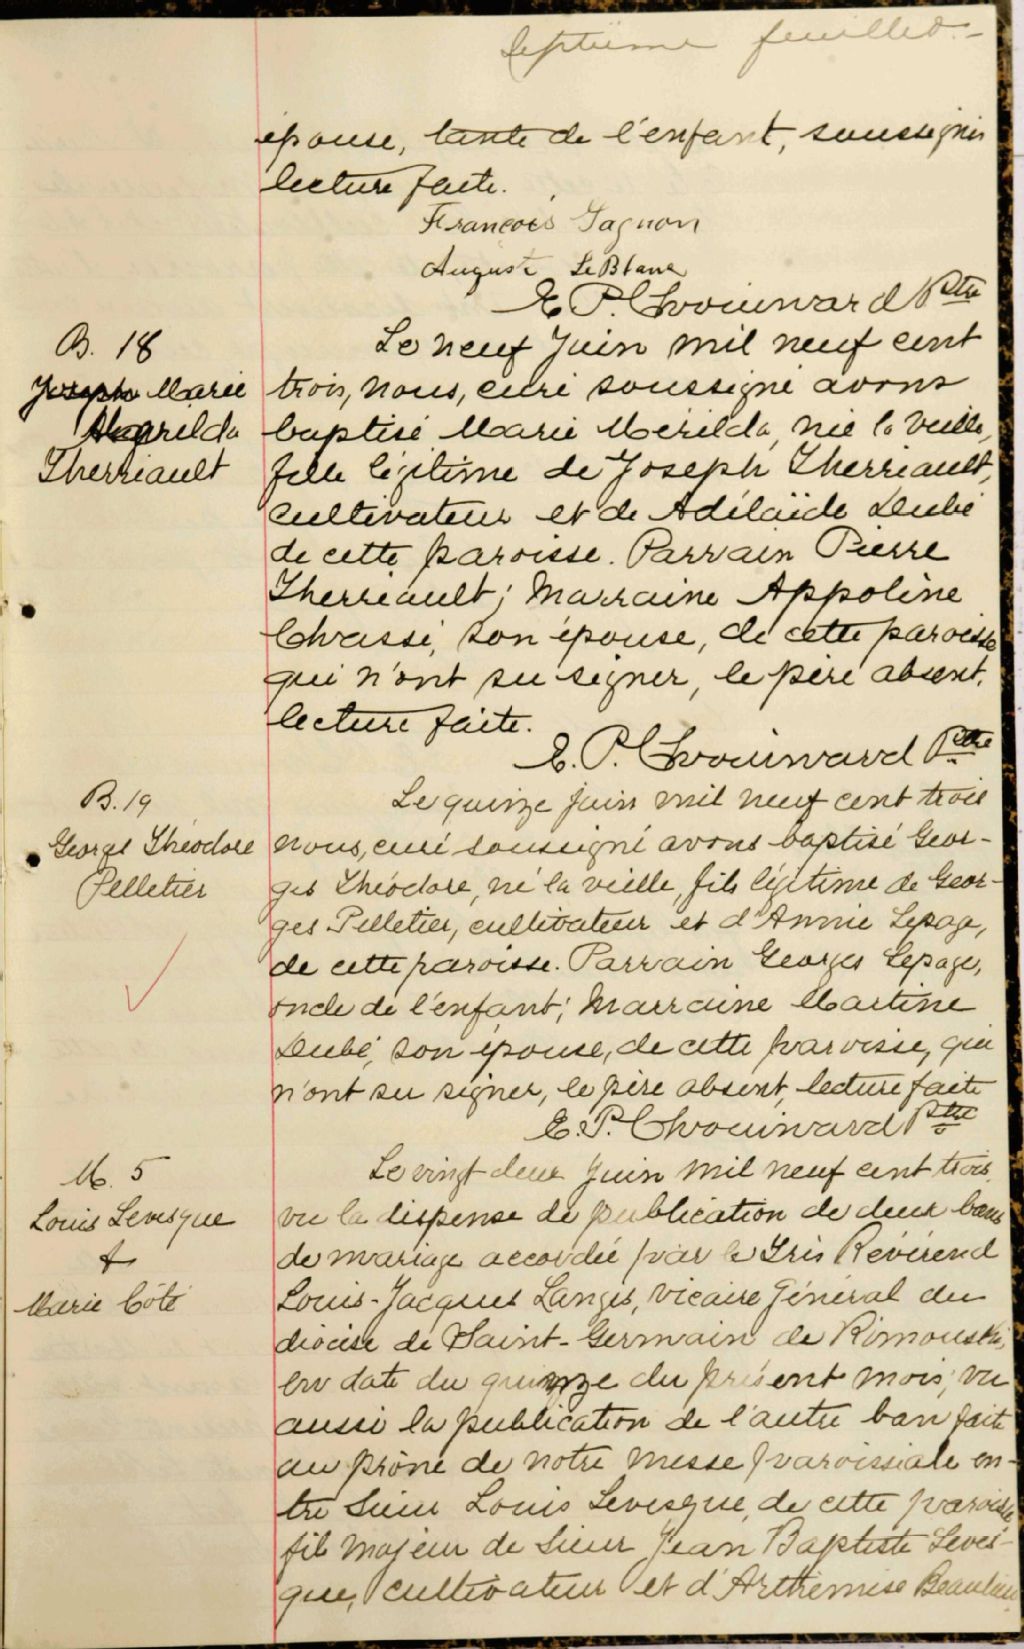 Septième feuillet.-
épouse, tante de l'enfant, soussignés
lecture faite.
François Gagnon
Auguste LeBlanc
E. P. Chouinward Ptre
B. 18
Joseph Marie
Marilda
Therriault
Le neuf Juin mil neuf cent
trois, nous, curé soussigné avons
baptisé Marie Mérilda, née la veille,
fille légitime de Joseph Therriault,
cultivateur et de Adélaïde Dubé
de cette paroisse. Parrain Pierre
Therriault; Marraine Appoline
Chassé, son épouse, de cette paroisse
qui n'ont su signer, le père absent.
lecture faite.
E. P. Chouinward Ptre
B. 19
Georges Théodore
Pelletier
Le quinze juin mil neuf cent trois
nous, curé soussigné avons baptisé Geor-
ges Théodore, né la veille, fils légitime de Geor-
ges Pelletier, cultivateur et d'Annie Lepage,
de cette paroisse. Parrain Georges Lepage,
oncle de l'enfant; Marraine Martine
Dubé, son épouse, de cette paroisse, qui
n'ont su signer, le père absent, lecture faite
E. P. Chouinward Ptre
M. 5
Louis Levesque
&
Marie Côté
Le vingt deux Juin mil neuf cent trois,
vu la dispense de publication de deux bans
de mariage accordée par le Très Révérend
Louis-Jacques Langis, vicaire Général du
diocèse de Saint-Germain de Rimouski,
en date du quinze du présent mois; vu
aussi la publication de l'autre ban faite
au prône de notre messe paroissiale en-
tre Sieur Louis Levesque, de cette paroisse
fils majeur de Sieur Jean Baptiste Leves-
que, cultivateur et d'Arthémise Beaulieu